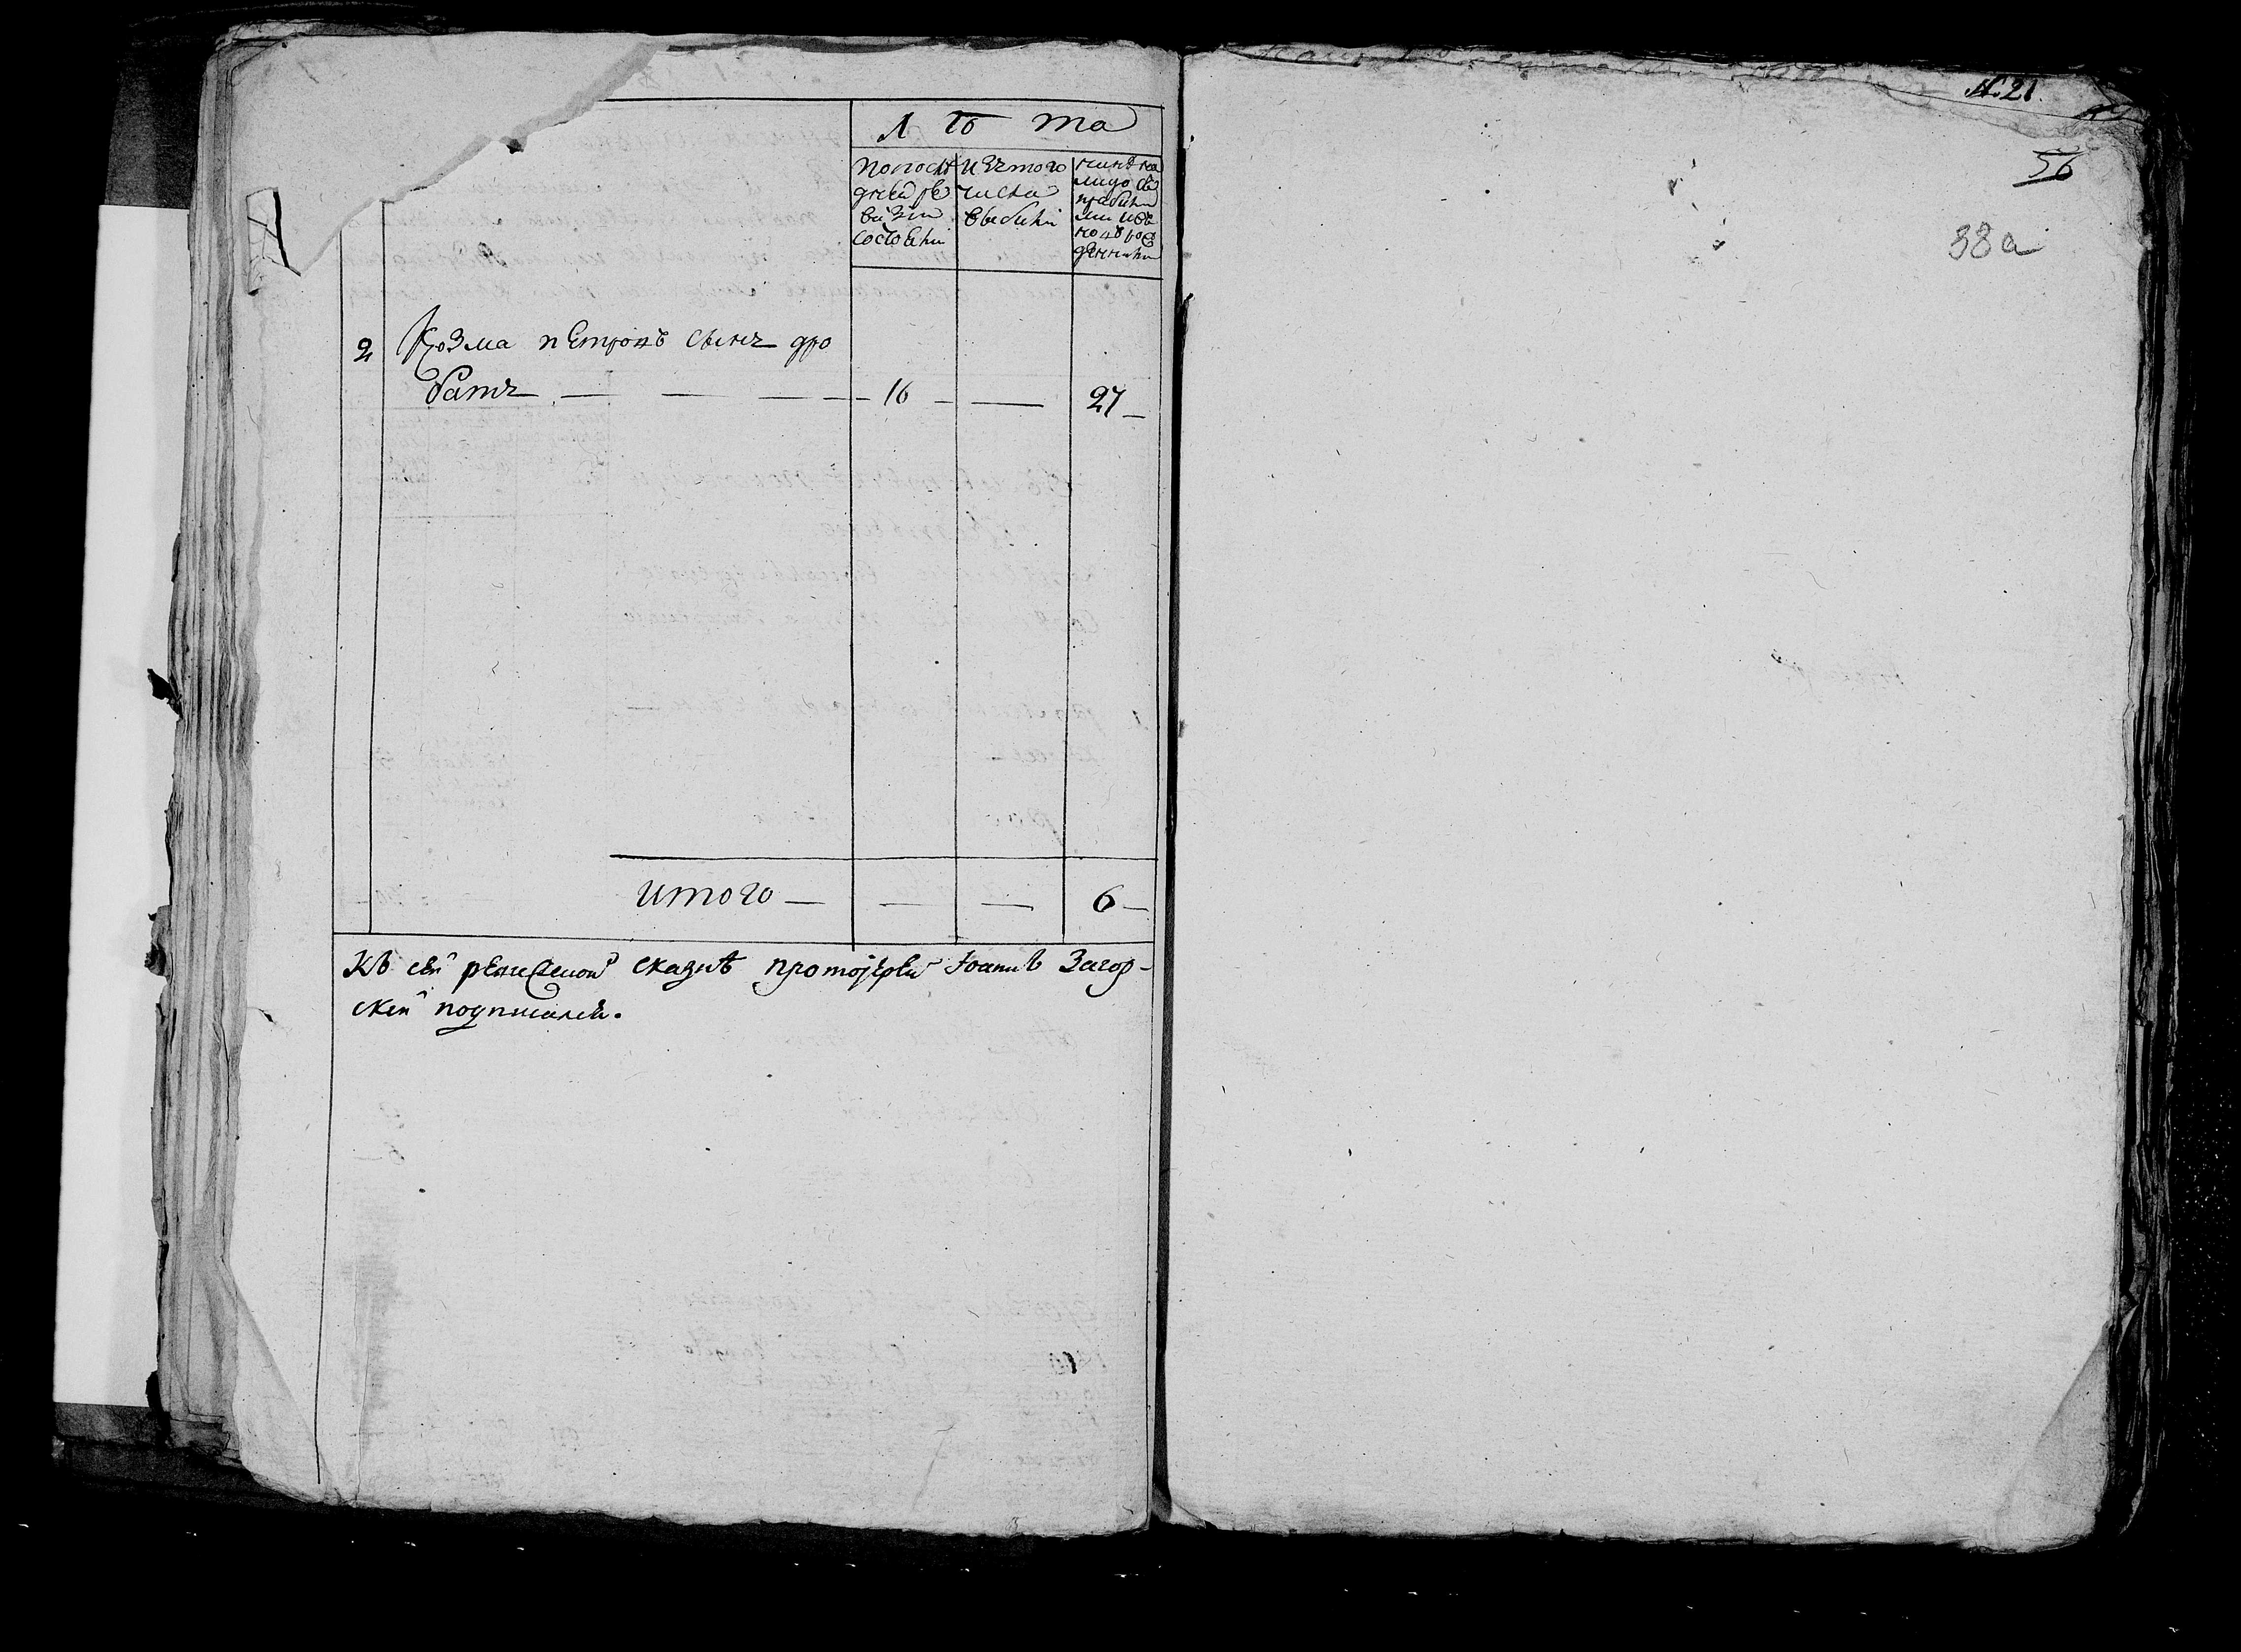 Лѣта
По послѣ
дней ре
визіи
состояли
Изъ того
числа
выбыли
нынѣ на
лицо съ
прибылы
ми и въ
новорож
денными
2 Козма Петровъ сынъ Дро
батъ — — — — 16 — — 27 —
Итого — — — 6 —
Къ сей ревиской сказкѣ протоіерей Іоаннъ Загор-
скій подписалъся.
№. 21.
56
38а